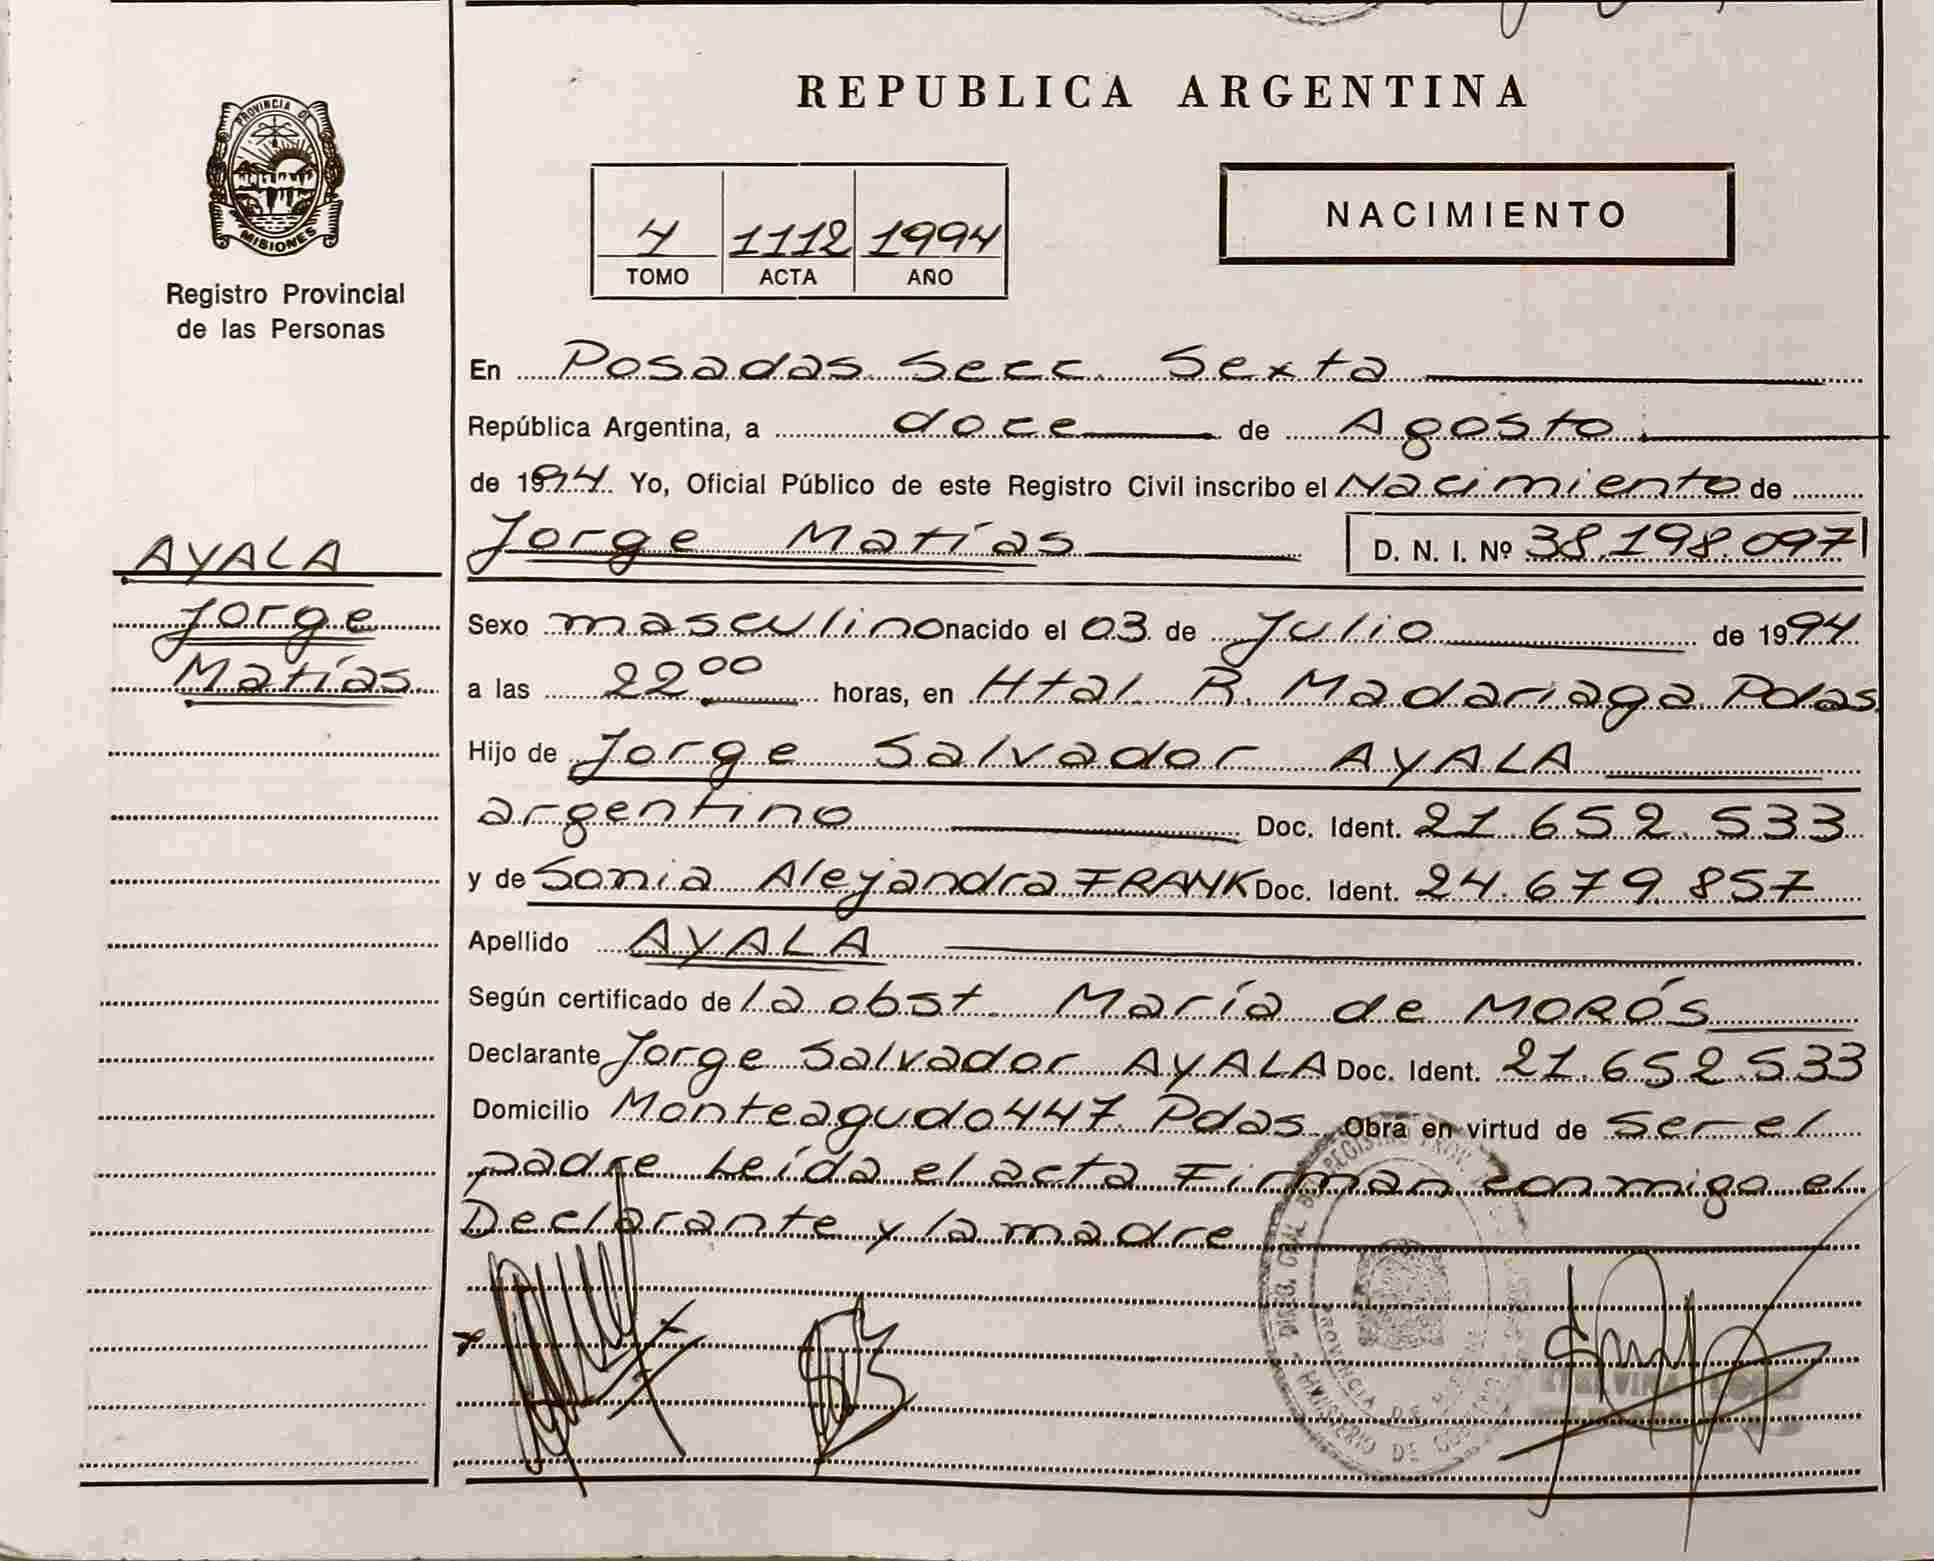 REPUBLICA ARGENTINA
PROVINCIA DE
MISIONES
Registro Provincial
de las Personas
4 1112 1994
TOMO ACTA AÑO
NACIMIENTO
En Posadas Secc. Sexta
República Argentina, a doce de Agosto
de 1994 Yo, Oficial Público de este Registro Civil inscribo el Nacimiento de
Jorge Matías D. N. I. Nº 38.198.097
AYALA
Jorge
Matías
Sexo masculino nacido el 03 de Julio de 1994
a las 22 00 horas, en Htal. R. Madariaga Pdas.
Hijo de Jorge Salvador AYALA
argentino Doc. Ident. 21.652.533
y de Sonia Alejandra FRANK Doc. Ident. 24.679.857
Apellido AYALA
Según certificado de la obst. María de MORÓS
Declarante Jorge Salvador AYALA Doc. Ident. 21.652.533
Domicilio Monteagudo 447 Pdas. Obra en virtud de ser el
padre Leída el acta Firman conmigo el
Declarante y la madre
PROVINCIA DE
MINISTERIO DE GOBIERNO